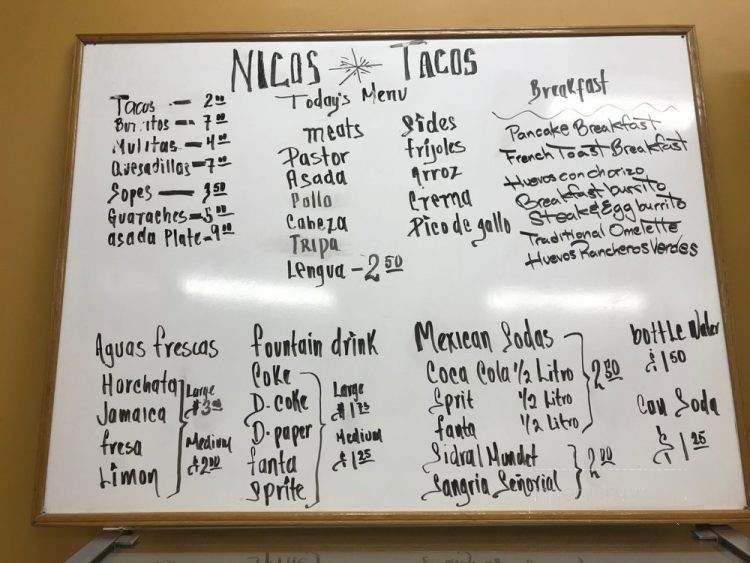 NICOS TACOS
Today's Menu
Tacos - 2.00
Burritos - 7.00
Mulitas - 4.00
Quesadillas - 7.00
Sopes - 3.50
Guaraches - 5.00
asada Plate - 9.00
meats
Pastor
Asada
Pollo
Cabeza
TRIPA
Lengua - 2.50
Sides
frijoles
Arroz
Crema
Pico de gallo
Breakfast
Pancake Breakfast
French Toast Breakfast
Huevos con chorizo
Breakfast burrito
Steak & Egg burrito
Traditional Omelette
Huevos Rancheros Verdes
Aguas frescas
Horchata
Jamaica
fresa
Limon
Large
$3.00
Medium
$2.00
fountain drink
Coke
D-coke
D-paper
fanta
Sprite
Large
$1.75
Medium
$1.25
Mexican Sodas
Coca Cola 1/2 Litro
Sprit 1/2 Litro
fanta 1/2 Litro
2.50
Sidral Mundet
Sangria Señorial
2.00
bottle Water
$1.50
Can Soda
$1.25